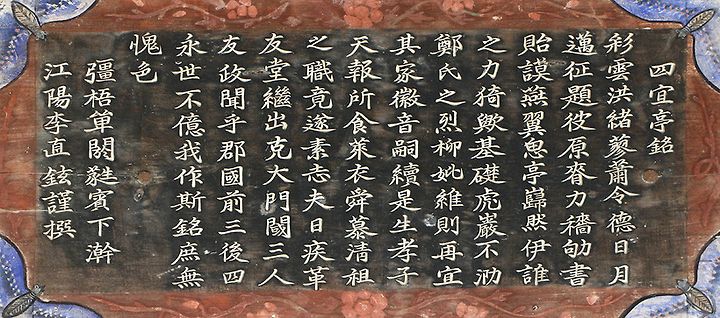 四宜亭銘
彩雲洪緒蓼蕭令德日月
邁征題彼原脊力穡劬書
貽謨燕翼恖亭巋然伊誰
之力猗歟基礎虎巖不泐
鄭氏之烈柳妣維則再宜
其家徽音嗣續是生孝子
天報所食萊衣舜慕清祖
之職竟遂素志夫日疾革
友堂繼出克大門閥三人
友政聞乎郡國前三後四
永世不億我作斯銘庶無
愧色
彊梧單閼蕤賓下澣
江陽李直鉉謹撰